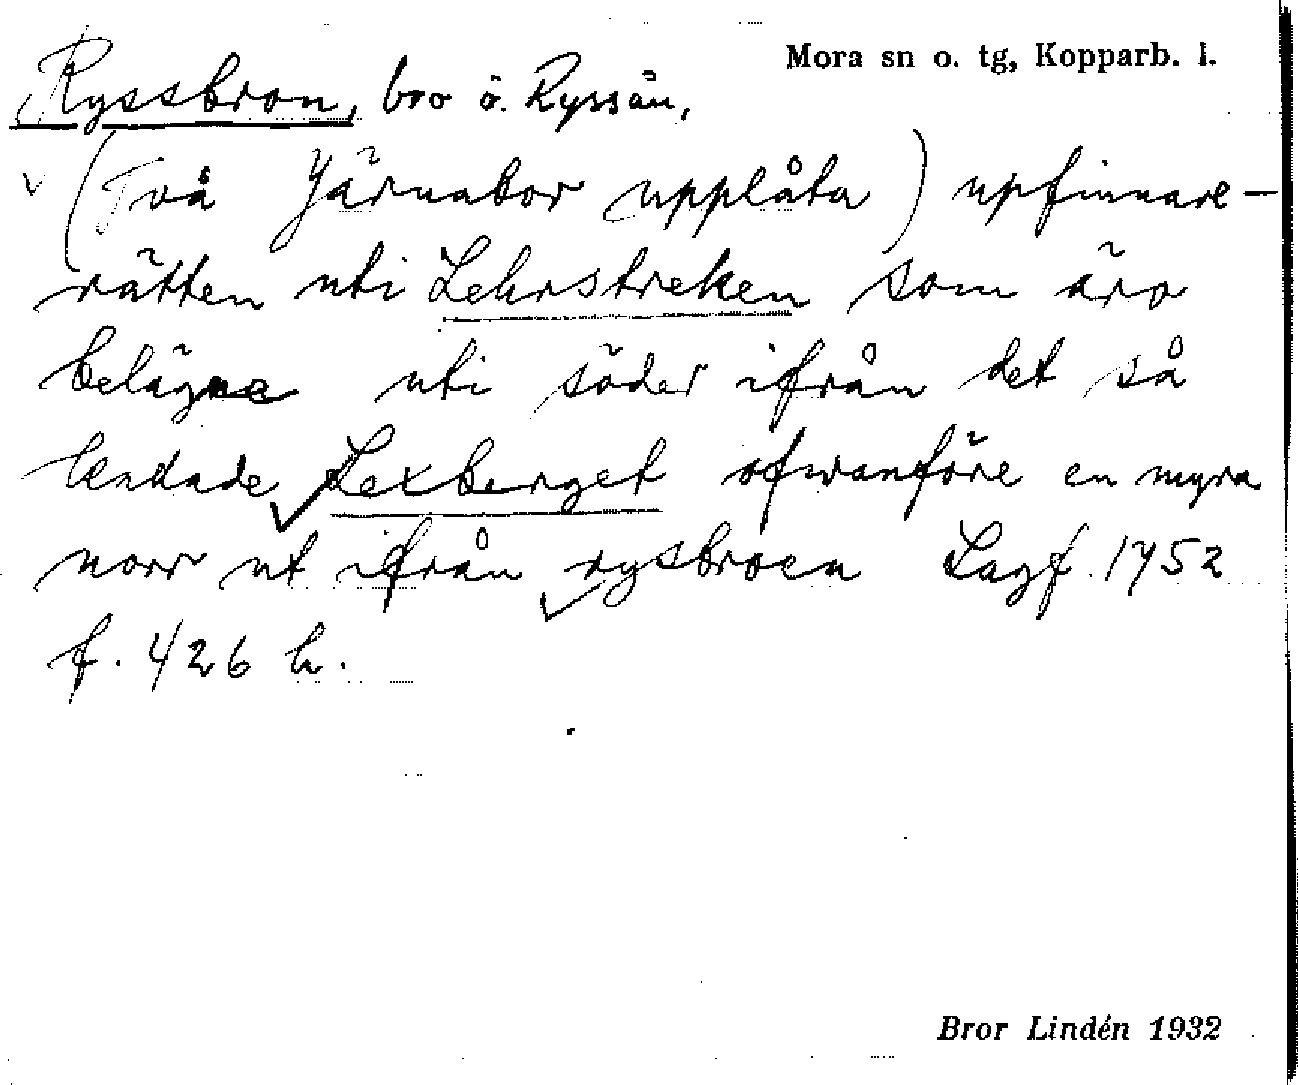 Mora sn o. tg, Kopparb. l.
Ryssbron, bro ö. Ryssån,
(Två Järnabor upplåta) upfinnare-
rätten uti Lehrstreken som äro
belägne uti söder ifrån det så
kendade Lexberget ofwanföre en myra
norr ut ifrån rysbroen Lagf. 1752
f. 426 h.
Bror Lindén 1932